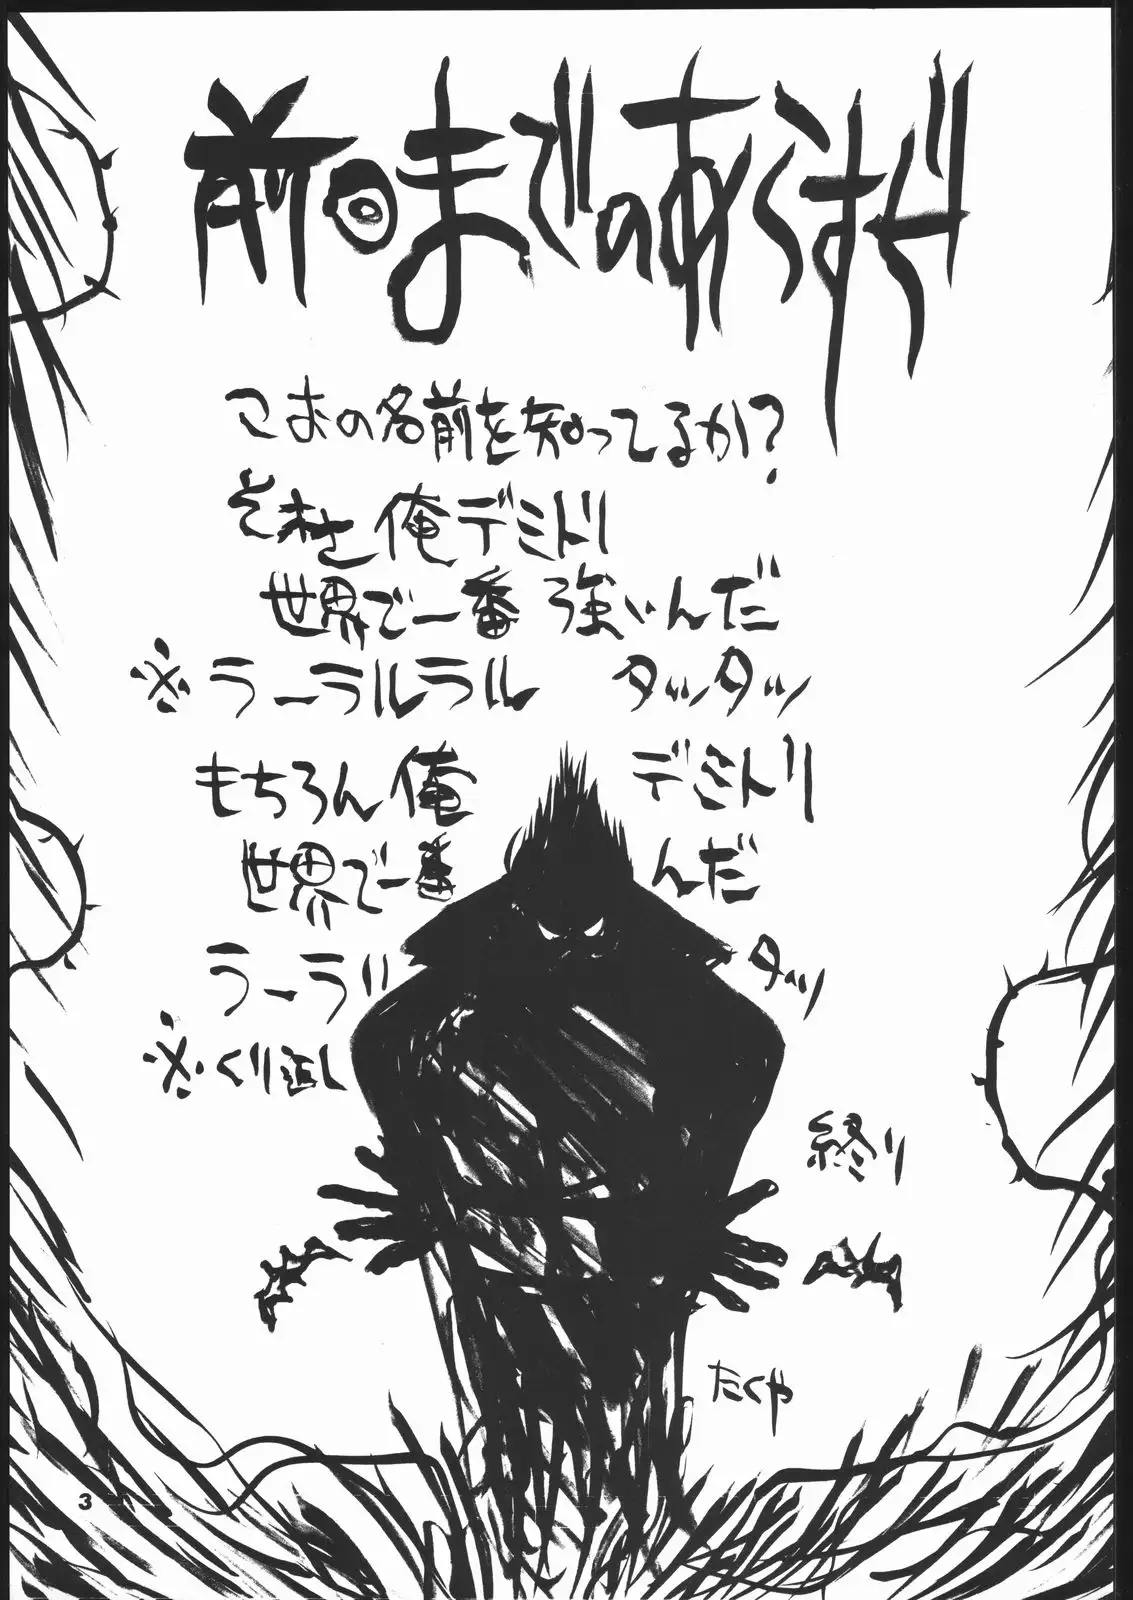 前回までのあらすじ
この名前を知ってるか?
それさ俺デミトリ
世界で一番強いんだ
※ラーラルラル タッタッ
もちろん俺 デミトリ
世界で一番 んだ
ラーラル タッ
※くり返し
終り
たくや
3